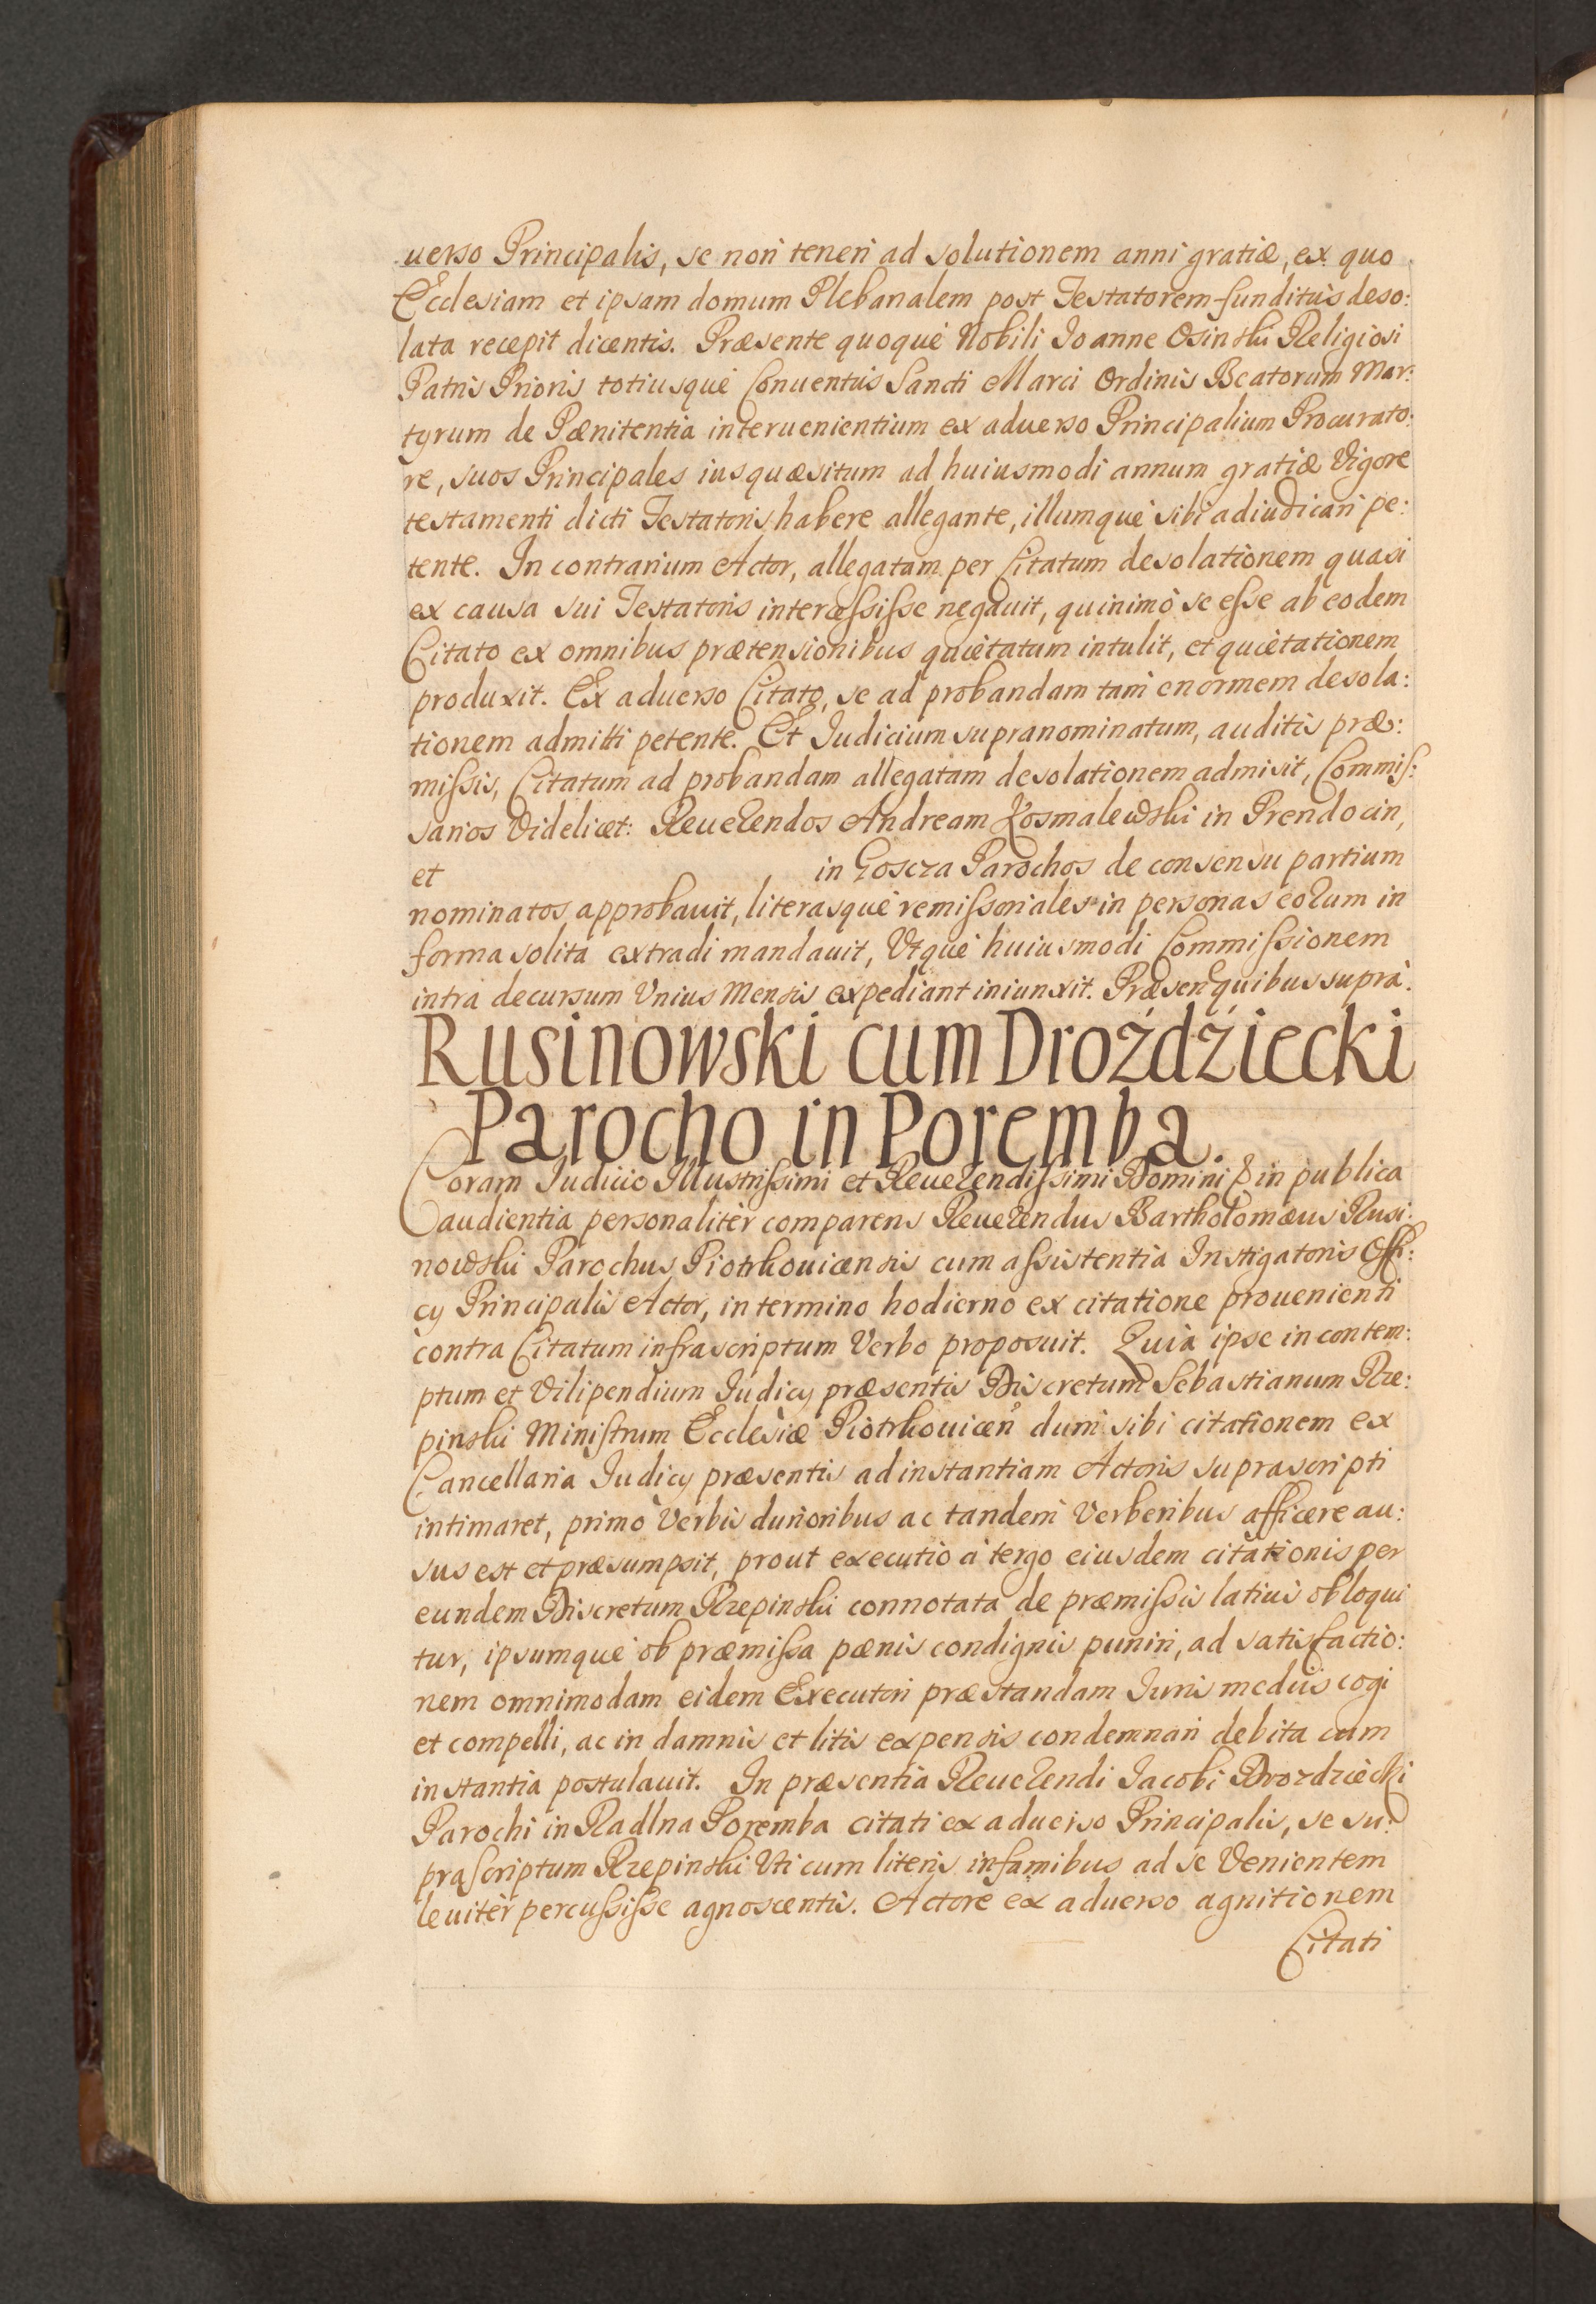 uerso Principalis, se non teneri ad solutionem anni gratiæ, ex quo
Ecclesiam et ipsam domum Plebanalem post Testatorem funditus deso:
lata recepit dicentis. Præsente quoque Nobili Joanne Osinski Religiosi
Patris Prioris totiusque Conuentus Sancti Marci Ordinis Beatorum Mar:
tyrum de Pænitentia interuenientium ex aduerso Principalium Procurato:
re, suos Principales ius quæsitum ad huiusmodi annum gratiæ Vigore
testamenti dicti Testatoris habere allegante, illumque sibi adiudicari pe:
tente. In contrarium Actor, allegatam per Citatum desolationem quasi
ex causa sui Testatoris intercessisse negauit, quinimò se esse ab eodem
Citato ex omnibus prætensionibus quietatum intulit, et quietationem
produxit. Ex aduerso Citato, se ad probandam tam enormem desola:
tionem admitti petente. Et Judicium supranominatum, auditis præ:
missis, Citatum ad probandam allegatam desolationem admisit, Commis:
sarios Videlicet: Reuerendos Andream Kosmalewski in Prendocin,
et in Goscza Parochos de consensu partium
nominatos approbauit, literasque remissoriales in personas eorum in
forma solita extradi mandauit, Utque huiusmodi Commissionem
intra decursum Unius Mensis expediant iniunxit. Præsen: quibus suprà.
Rusinowski cum Droźdźiecki
Parocho in Poremba.
Coram Judicio Illustrissimi et Reuerendissimi Domini & in publica
audientia personaliter comparens Reuerendus Bartholomæus Rusi:
nowski Parochus Piotrkouicensis cum assistentia Instigatoris Offi:
cy Principalis Actor, in termino hodierno ex citatione prouenienti
contra Citatum infrascriptum Verbo proposuit. Quia ipse in contem:
ptum et Vilipendium Judicy præsentis Discretum Sebastianum Rze:
pinski Ministrum Ecclesiæ Piotrkouicen dum sibi citationem ex
Cancellaria Judicy præsentis ad instantiam Actoris suprascripti
intimaret, primò Verbis durioribus ac tandem Verberibus afficere au:
sus est et præsumpsit, prout executio à tergo eiusdem citationis per
eundem Discretum Rzepinski connotata de præmissis latius obloqui
tur, ipsumque ob præmissa pænis condignis puniri, ad satisfactio:
nem omnimodam eidem Executori præstandam Juris mediis cogi
et compelli, ac in damnis et litis expensis condemnari debita cum
instantia postulauit. In præsentia Reuerendi Jacobi Drozdziecki
Parochi in Radlna Poremba citati ex aduerso Principalis, se su:
prascriptum Rzepinski Uti cum literis infamibus ad se Venientem
leuitèr percussisse agnoscentis. Actore ex aduerso agnitionem
Citati